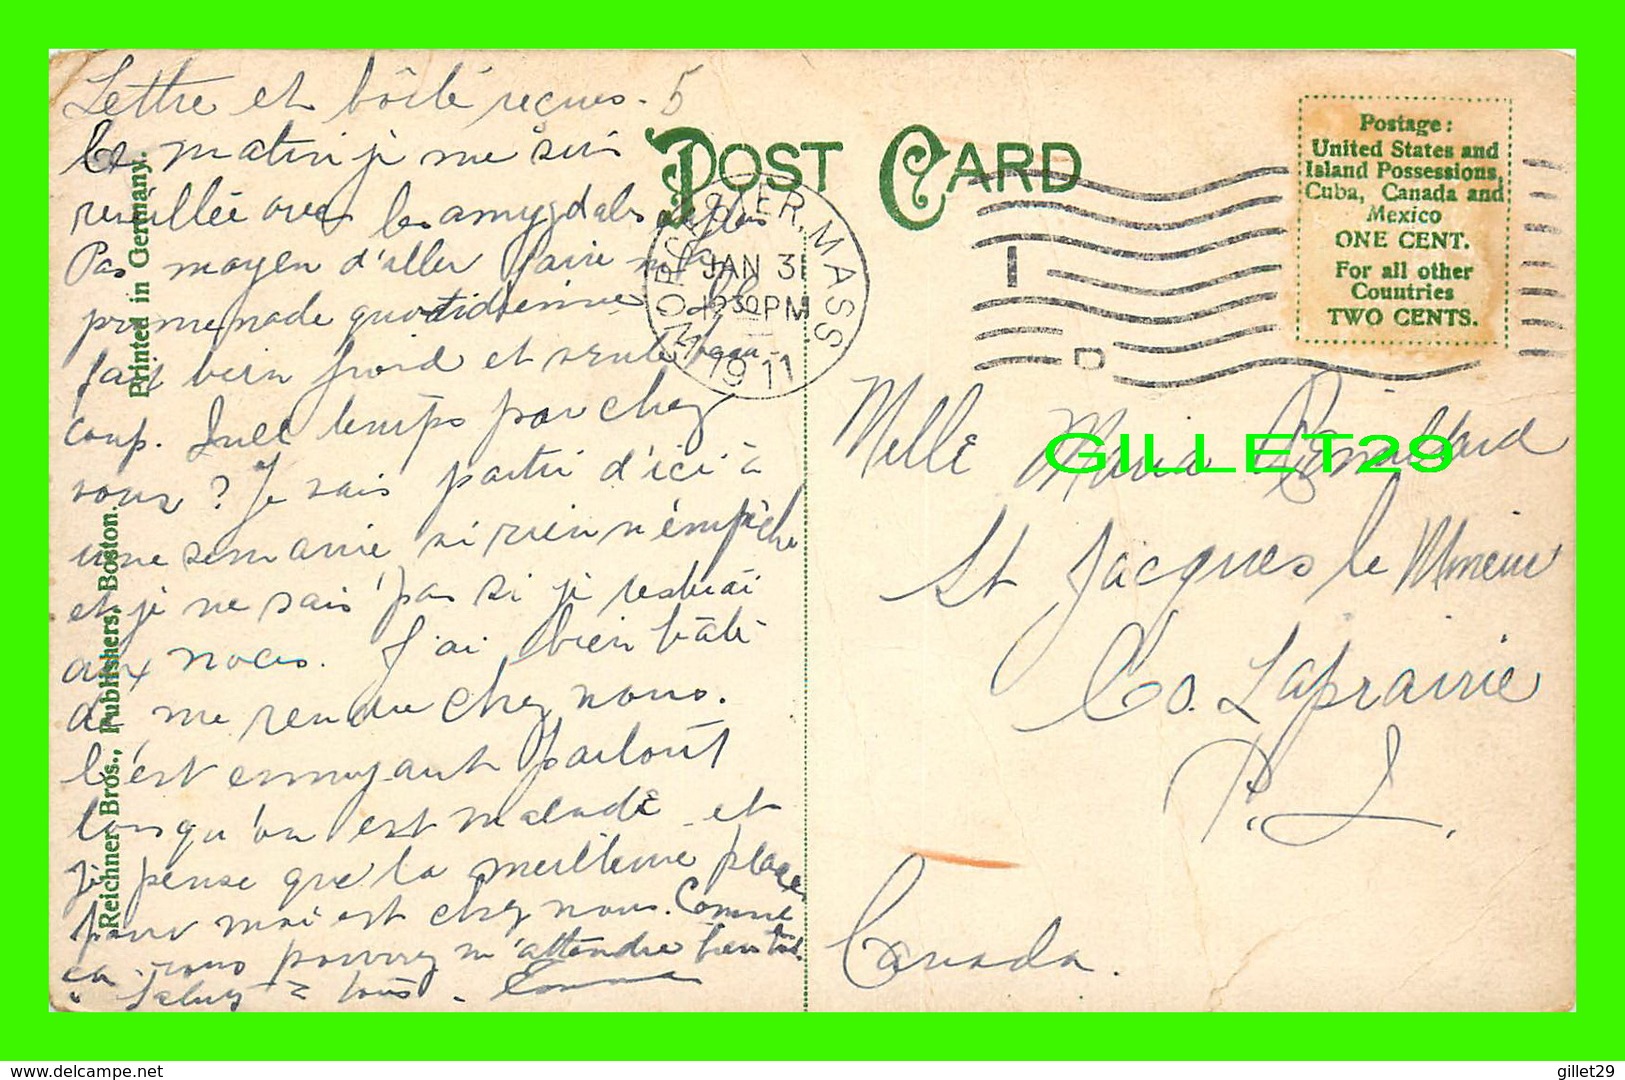 Lettre et boîte reçues. 5
Ce matin je me suis
réveillée avec les amygdales enflées
Pas moyen d'aller faire ma
promenade quotidienne. Il
fait bien froid et vente beau-
coup. Quel temps par chez
vous? Je vais partir d'ici à
une semaine si rien n'empêche
et je ne sais pas si je resterai
aux noces. J'ai bien hâte
de me rendre chez nous.
C'est ennuyant partout
lorsqu'on est malade et
je pense que la meilleure place
pour moi est chez nous. Comme
ça vous pouvez m'attendre bientôt.
Saluts à tous. Emma
Printed in Germany.
Reichner Bros., Publishers, Boston.
POST CARD
WORCESTER, MASS
JAN 31
12 30 PM
1911
I
D
Postage:
United States and
Island Possessions,
Cuba, Canada and
Mexico
ONE CENT.
For all other
Countries
TWO CENTS.
Melle Maria
St Jacques le Mineur
Co. Laprairie
P. Q.
Canada.
GILLET29
delcampe.net
gillet29